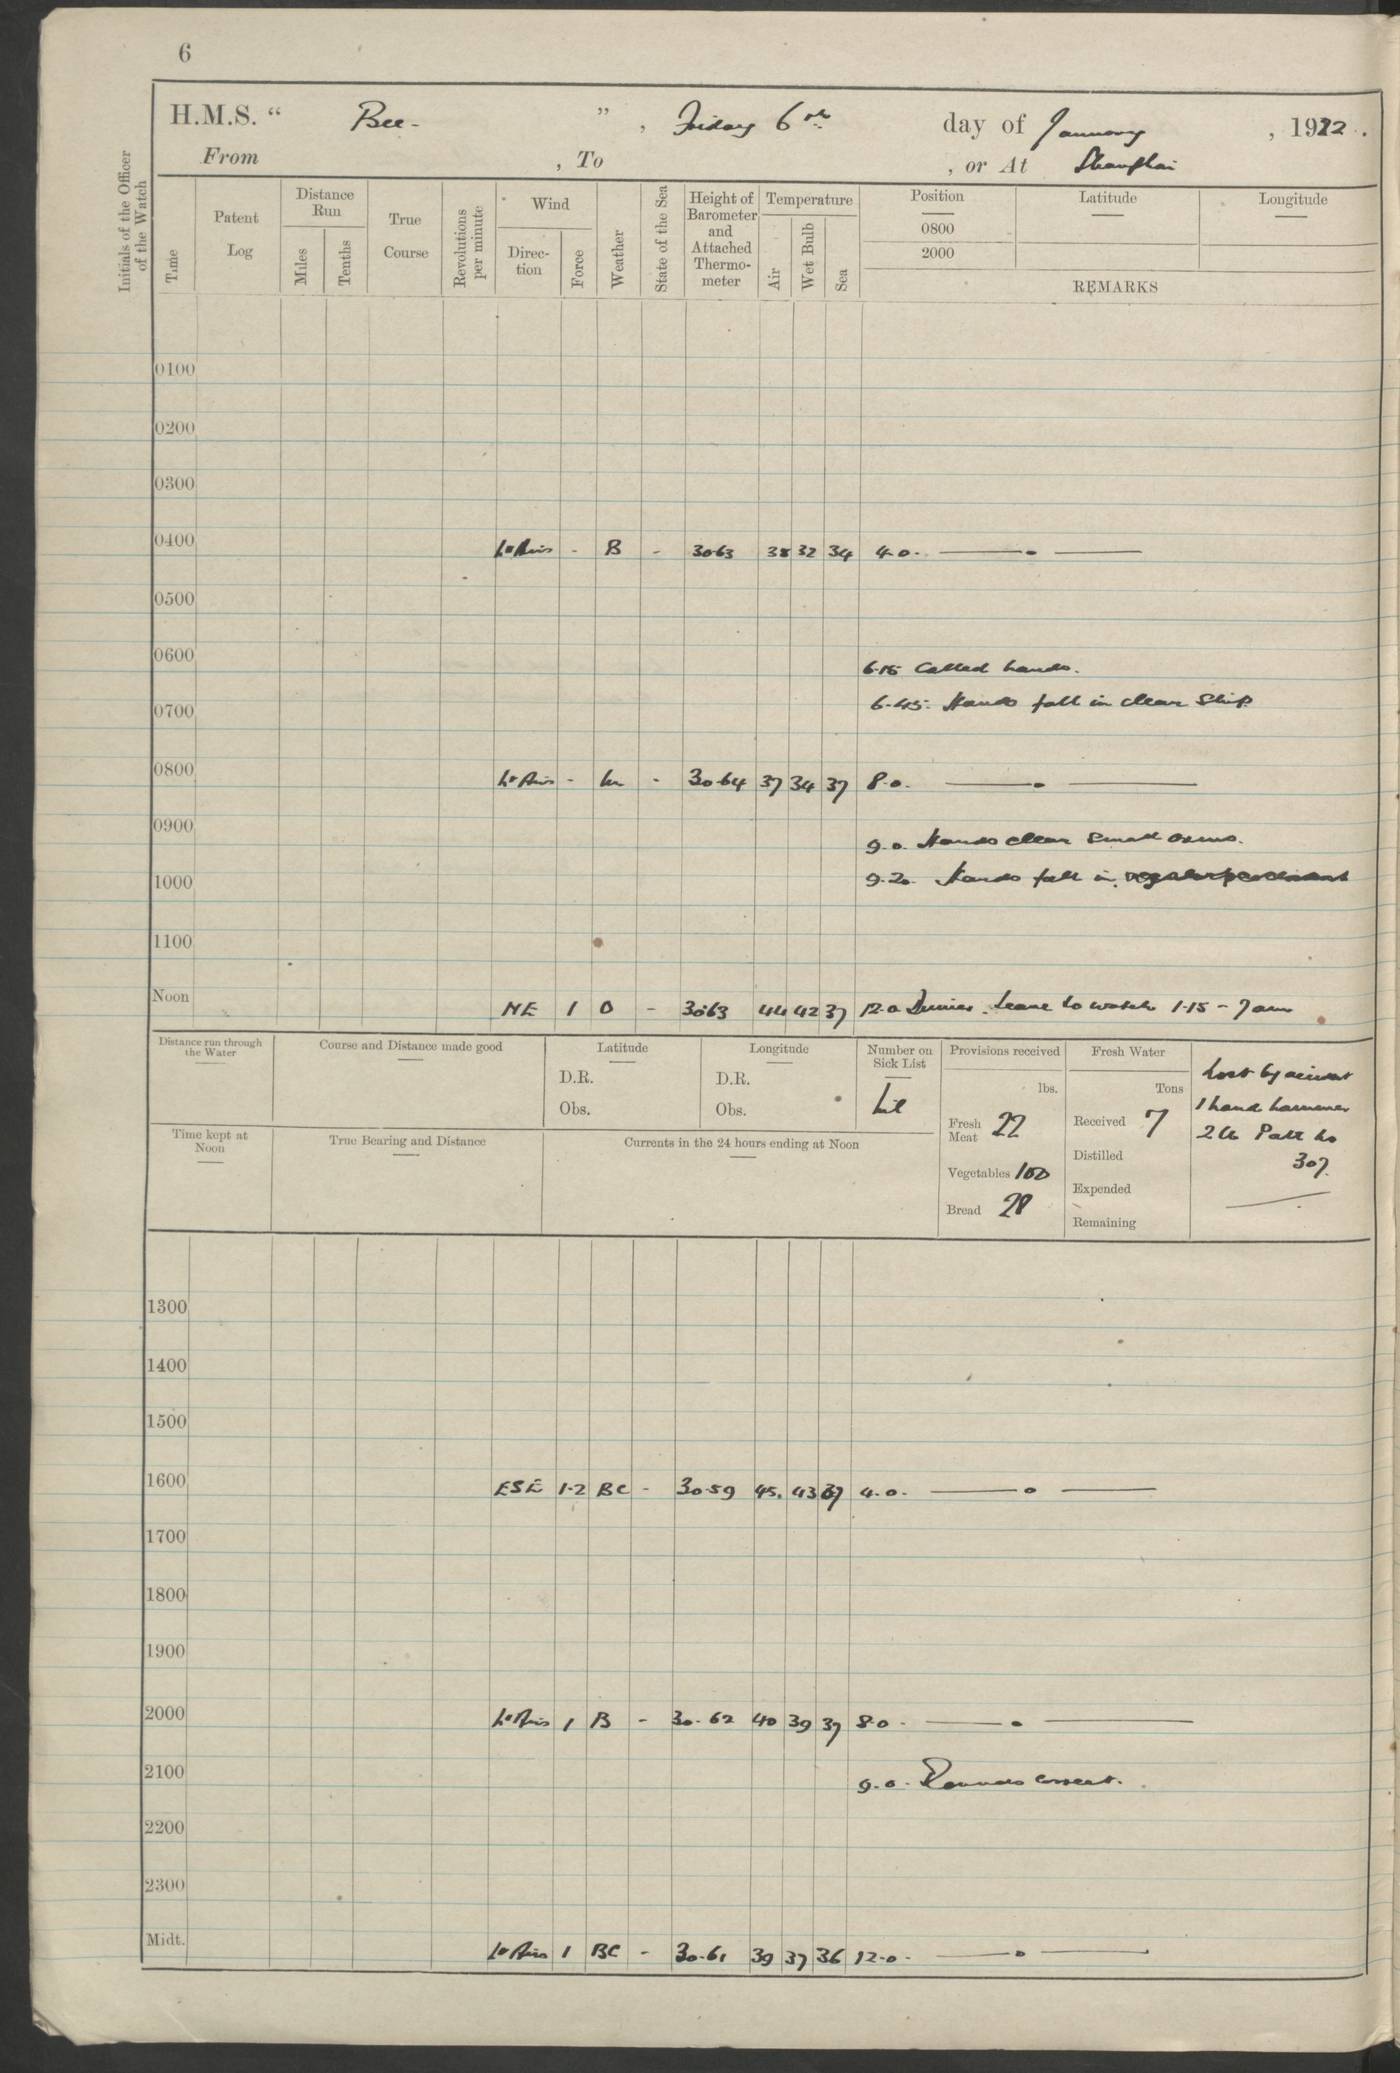 6
H.M.S. “ Bee. ” , Friday 6th day of January , 1922.
From , To , or At Shanghai
Initials of the Officer of the Watch
Time
Patent Log
Distance Run
Miles
Tenths
True Course
Revolutions per minute
Wind
Direc-tion
Force
Weather
State of the Sea
Height of Barometer and Attached Thermo-meter
Temperature
Air
Wet Bulb
Sea
Position Latitude Longitude
0800
2000
REMARKS
0100
0200
0300
0400 Lt Airs - B - 30.63 38 32 34 4.0.
0500
0600
6.15 Called hands.
6.45. Hands fall in clean Ship.
0700
0800 Lt Airs - - 30.64 37 34 37 8.0.
0900
9.0. Hands clean Small arms.
9.20. Hands fall in
1000
1100
Noon NE 1 O - 30.63 44 42 37 12.0 Dinner. Leave to watch 1.15 - 7 am
Distance run through the Water
Course and Distance made good
Latitude
D.R.
Obs.
Longitude
D.R.
Obs.
Number on Sick List
Provisions received
lbs.
Fresh Meat 22
Vegetables 100
Bread 28
Fresh Water
Tons
Received 7
Distilled
Expended
Remaining
Lost by accident
1 hand hammer
2 lb Patt No
307.
Time kept at Noon
True Bearing and Distance
Currents in the 24 hours ending at Noon
1300
1400
1500
1600 ESE 1-2 BC - 30.59 45. 43 37 4.0.
1700
1800
1900
2000 Lt Airs 1 B - 30.62 40 39 37 8.0.
2100
9.0. Rounds correct.
2200
2300
Midt. Lt Airs 1 BC - 30.61 39 37 36 12.0.